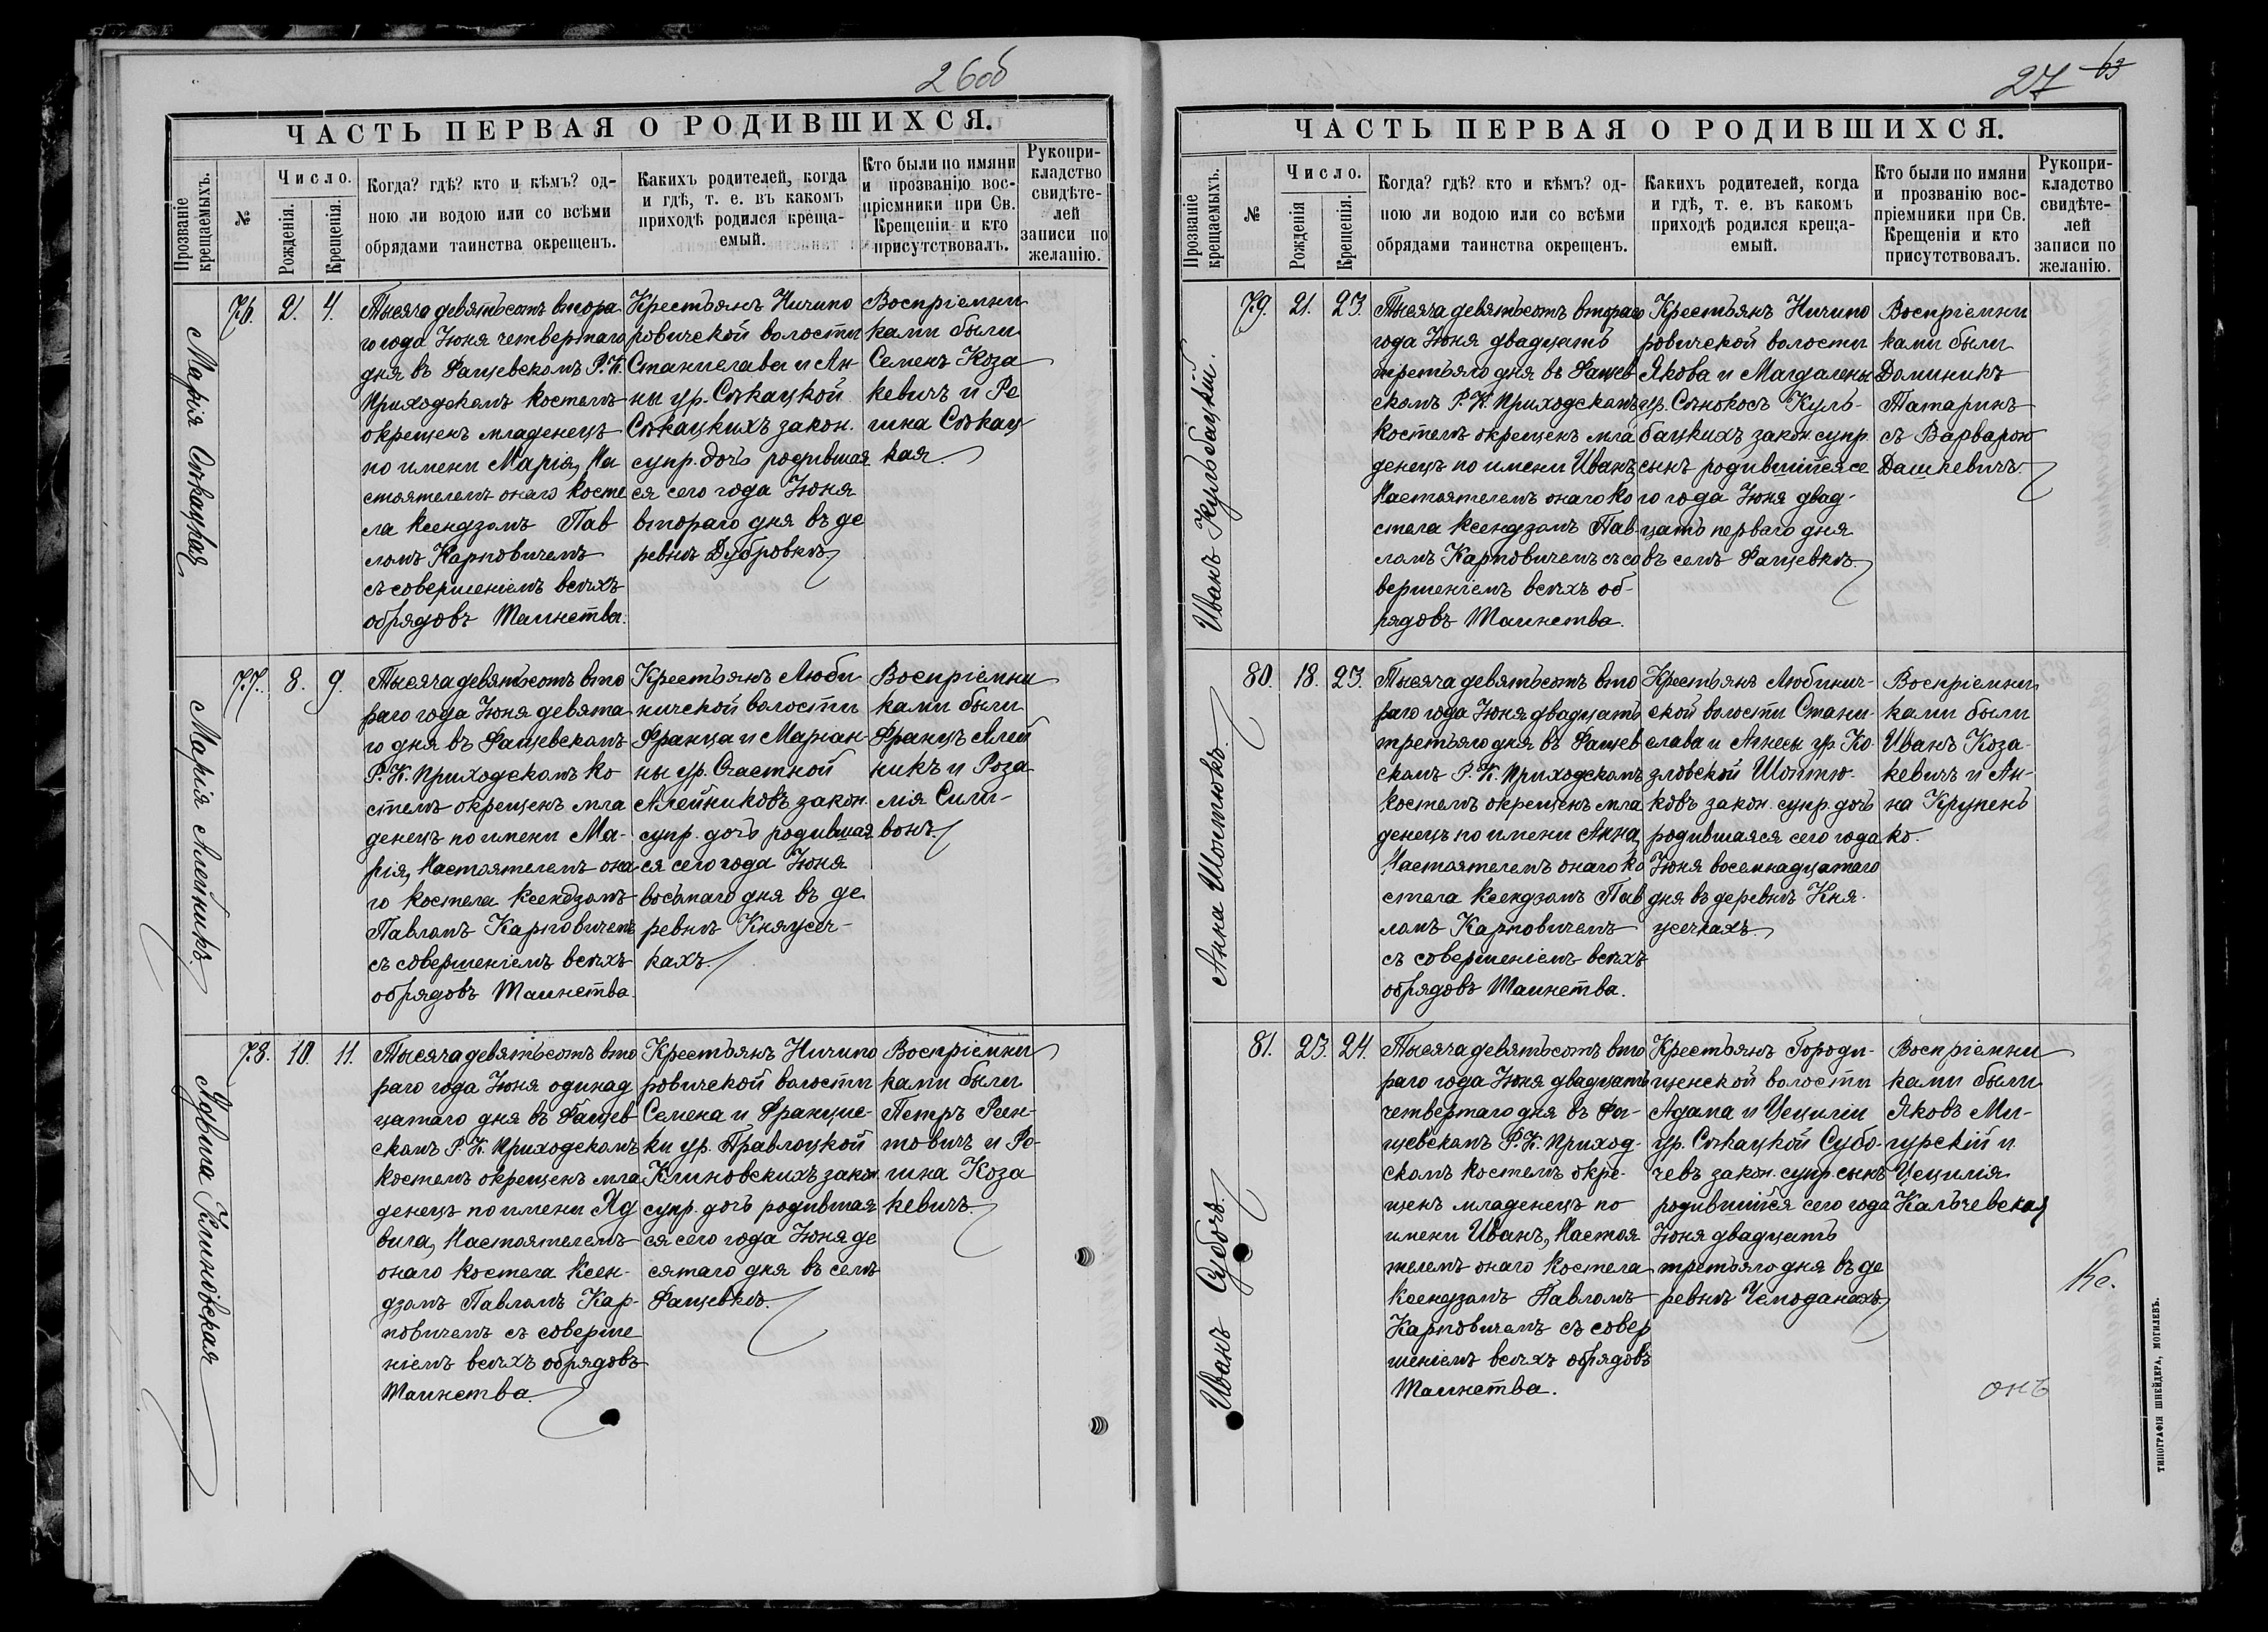 26об
ЧАСТЬ ПЕРВАЯ О РОДИВШИХСЯ.
Прозваніе крещаемыхъ.
№
Число.
Рожденія.
Крещенія.
Когда? гдѣ? кто и кѣмъ? од-
ною ли водою или со всѣми
обрядами таинства окрещенъ.
Какихъ родителей, когда
и гдѣ, т. е. въ какомъ
приходѣ родился креща-
емый.
Кто были по имяни
и прозванію вос-
пріемники при Св.
Крещеніи и кто
присутствовалъ.
Рукопри-
кладство
свидѣте-
лей
записи по
желанію.
Марія Сѣкацкая
76.
2.
4.
Тысяча девятьсотъ втора
го года Іюня четвертаго
дня въ Фащевскомъ Р. К.
Приходскомъ костелѣ
окрещенъ младенецъ
по имени Марія, На
стоятелемъ онаго косте
ла Ксендзомъ Пав
ломъ Карповичемъ
съ совершеніемъ всѣхъ
обрядовъ Таинства.
Крестьянъ Ничипо
ровичской волости
Станислава и Ан
ны ур. Сѣкацкой
Сѣкацкихъ закон.
супр. дочь родившая
ся сего года Іюня
втораго дня въ де
ревнѣ Дубровкѣ.
Воспріемни
ками были
Семенъ Коза
кевичъ и Ре
гина Сѣкац
кая.
Марія Алейникъ.
77.
8.
9.
Тысяча девятьсотъ вто
раго года Іюня девята
го дня въ Фащевскомъ
Р. К. Приходскомъ ко
стелѣ окрещенъ мла
денецъ по имени Ма-
рія, Настоятелемъ она
го костела Ксендзомъ
Павломъ Карповичемъ
съ совершеніемъ всѣхъ
обрядовъ Таинства.
Крестьянъ Люби
ничской волости
Франца и Маріан-
ны ур. Счастной
Алейниковъ закон.
супр. дочь родившая
ся сего года Іюня
восьмаго дня въ де
ревнѣ Княусеч-
кахъ.
Воспріемни
ками были
Францъ Алей
никъ и Роза
лія Сили-
вонъ.
Ядвига Клиновская
78.
10.
11.
Тысяча девятьсотъ вто
раго года Іюня одинад
цатаго дня въ Фащев
скомъ Р. К. Приходскомъ
костелѣ окрещенъ мла
денецъ по имени Яд
вига, Настоятелемъ
онаго костела Ксен-
дзомъ Павломъ Кар-
повичемъ съ соверше
ніемъ всѣхъ обрядовъ
Таинства.
Крестьянъ Ничипо
ровичской волости
Семена и Францис-
ки ур. Правлоцкой
Клиновскихъ закон.
супр. дочь родившая
ся сего года Іюня де
сятаго дня въ селѣ
Фащевкѣ.
Воспріемни
ками были
Петръ Реен-
товичъ и Ре-
гина Коза
кевичъ.
27 63
ЧАСТЬ ПЕРВАЯ О РОДИВШИХСЯ.
Прозваніе крещаемыхъ.
№
Число.
Рожденія
Крещенія.
Когда? гдѣ? кто и кѣмъ? од-
ною ли водою или со всѣми
обрядами таинства окрещенъ.
Какихъ родителей, когда
и гдѣ, т. е. въ какомъ
приходѣ родился креща-
емый.
Кто были по имяни
и прозванію вос-
пріемники при Св.
Крещеніи и кто
присутствовалъ.
Рукопри-
кладство
свидѣте-
лей
записи по
желанію.
Иванъ Кульбацкій.
79.
21.
23.
Тысяча девятьсотъ втораго
года Іюня двадцать
третьяго дня въ Фащев
скомъ Р. К. Приходскомъ
костелѣ окрещенъ мла
денецъ по имени Иванъ,
Настоятелемъ онаго ко
стела Ксендзомъ Пав
ломъ Карповичемъ съ со
вершеніемъ всѣхъ об-
рядовъ Таинства.
Крестьянъ Ничипо
ровичской волости
Якова и Магдалены
ур. Сѣнокосъ Куль-
бацкихъ закон. супр.
сынъ родившійся се
го года Іюня двад-
цать перваго дня
въ селѣ Фащевкѣ.
Воспріемни
ками были
Доминикъ
Татаринъ
съ Варварою
Дашкевичъ.
Анна Шоптюкъ.
80.
18.
23.
Тысяча девятьсотъ вто
раго года Іюня двадцать
третьяго дня въ Фащев
скомъ Р. К. Приходскомъ
костелѣ окрещенъ мла
денецъ по имени Анна,
Настоятелемъ онаго ко
стела Ксендзомъ Пав
ломъ Карповичемъ
съ совершеніемъ всѣхъ
обрядовъ Таинства.
Крестьянъ Любинич-
ской волости Стани-
слава и Агнесы ур. Ко-
зловской Шоптю-
ковъ закон. супр. дочь
родившаяся сего года
Іюня восемнадцатаго
дня въ деревнѣ Кня-
усечкахъ.
Воспріемни
ками были
Иванъ Коза-
кевичъ и Ан-
на Крупень
ко.
Иванъ Суботъ.
81.
23.
24.
Тысяча девятьсотъ вто
раго года Іюня двадцать
четвертаго дня въ Фа-
щевскомъ Р. К. Приход-
скомъ костелѣ окре-
щенъ младенецъ по
имени Иванъ, Настоя
телемъ онаго костела
Ксендзомъ Павломъ
Карповичемъ съ совер
шеніемъ всѣхъ обрядовъ
Таинства.
Крестьянъ Городи-
щенской волости
Адама и Цециліи
ур. Сѣкацкой Субо-
чевъ закон. супр. сынъ
родившійся сего года
Іюня двадцать
третьяго дня въ де
ревнѣ Чемоданахъ.
Воспріемни
ками были
Яковъ Ми-
гурскій и
Цецилія
Кальчевская
Кс.
онъ
ТИПОГРАФІЯ ШНЕЙДЕРА, МОГИЛЕВЪ.